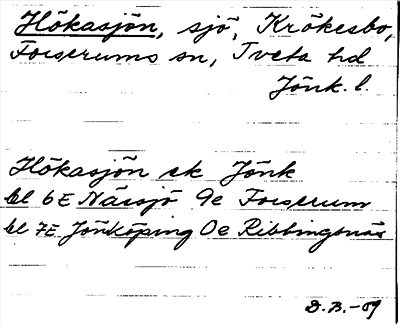 Hökasjön, sjö, Krökesbo,
Forserums sn, Tveta hd
Jönk. l.
Hökasjön ek Jönk
bl 6E Nässjö 9e Forserum
bl 7E Jönköping 0e Ribbingsnäs
D.B.-09